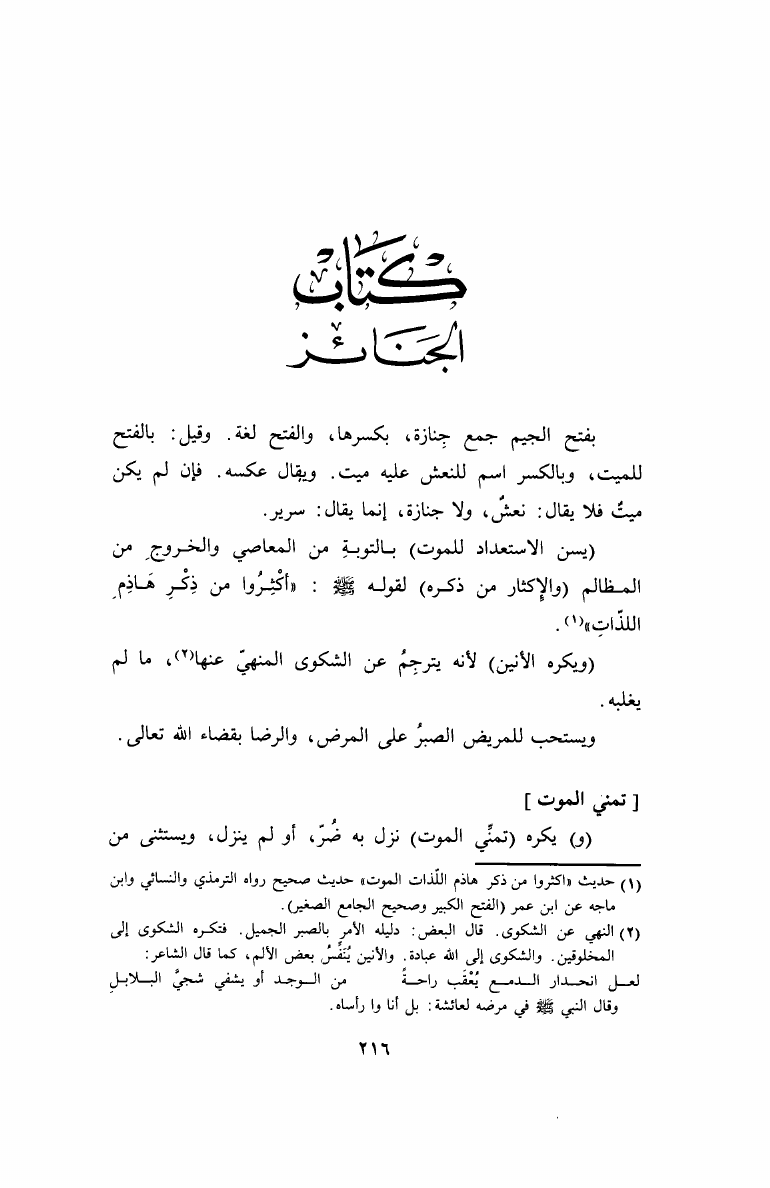 كتاب
الجنائز
بفتح الجيم جمع جِنازة، بكسرها، والفتح لغة. وقيل: بالفتح
للميت، وبالكسر اسم للنعش عليه ميت. ويقال عكسه. فإن لم يكن
ميتٌ فلا يقال: نعشٌ، ولا جنازة، إنما يقال: سرير.
(يسن الاستعداد للموت) بالتوبةِ من المعاصي والخروجِ من
المظالم (والإكثار من ذكره) لقوله ﷺ : «أكْثِرُوا من ذِكْرِ هَاذِمِ
اللذّاتِ»(١).
(ويكره الأنين) لأنه يترجِمُ عن الشكوى المنهيّ عنها(٢)، ما لم
يغلبه.
ويستحب للمريض الصبرُ على المرض، والرضا بقضاء الله تعالى.
[ تمني الموت ]
(و) يكره (تمنِّي الموت) نزل به ضُرّ، أو لم ينزل، ويستثنى من
(١) حديث «اكثروا من ذكر هاذم اللّذات الموت» حديث صحيح رواه الترمذي والنسائي وابن
ماجه عن ابن عمر (الفتح الكبير وصحيح الجامع الصغير).
(٢) النهي عن الشكوى. قال البعض: دليله الأمر بالصبر الجميل. فتكره الشكوى إلى
المخلوقين. والشكوى إلى الله عبادة. والأنين يُنَفِّسُ بعض الألم، كما قال الشاعر:
لعل انحدار الدمع يُعْقب راحةً من الوجد أو يشفي شجيَّ البلابلِ
وقال النبي ﷺ في مرضه لعائشة: بل أنا وا رأساه.
٢١٦